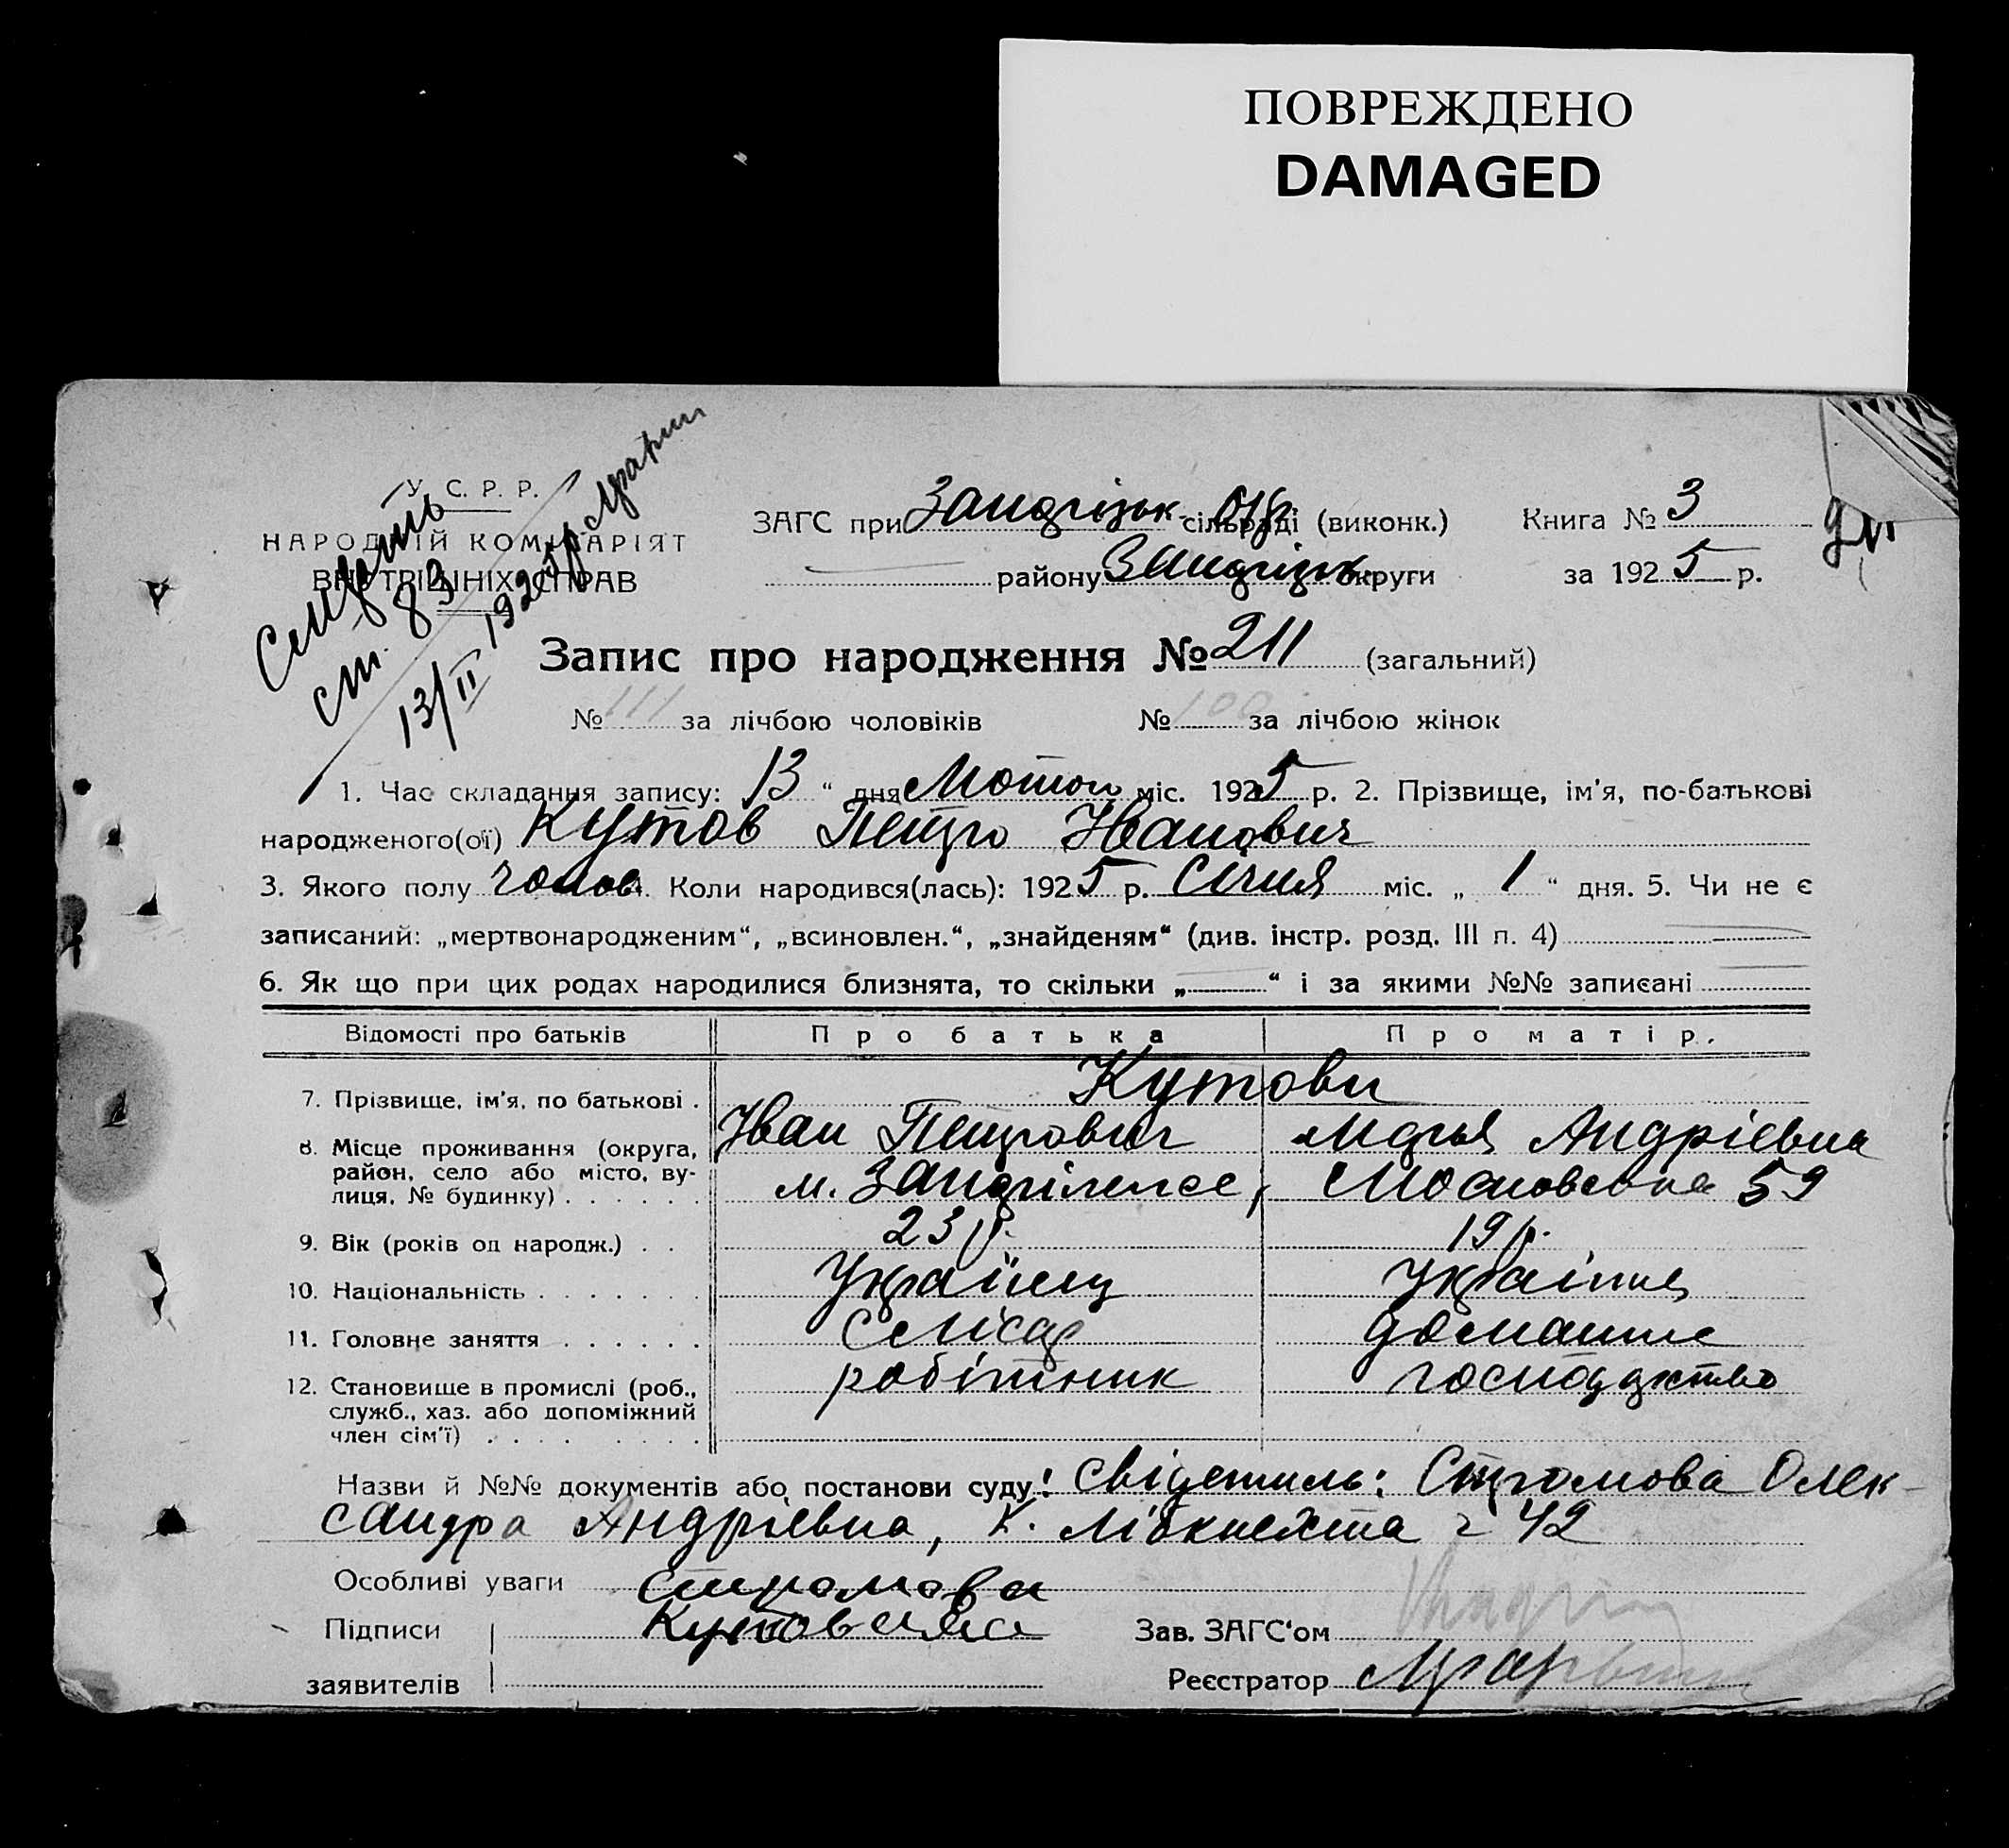 ПОВРЕЖДЕНО
DAMAGED
У. С. Р. Р.
НАРОДНІЙ КОМІСАРІЯТ
ВНУТРІШНІХ СПРАВ
Смерть
ст. 83
13/II 1925р
ЗАГС при Запорізьк. окр. сільраді (виконк.) Книга № 3
району Запорізьк. округи за 1925 р.
Запис про народження № 211 (загальний)
№ 111 за лічбою чоловіків № 100 за лічбою жінок
1. Час складання запису: 13 “ дня Лютого міс. 1925 р. 2. Прізвище, ім'я, по-батькові
народженого(ої) Кутов Петро Іванович
3. Якого полу чолов. 4. Коли народився(лась): 1925 р. Січня міс. „ 1 “ дня. 5. Чи не є
записаний: „мертвонародженим“, „всиновлен.“, „знайденям“ (див. інстр. розд. III п. 4)
6. Як що при цих родах народилися близнята, то скільки „ “ і за якими №№ записані
Відомості про батьків Про батька Про матір.
Кутови
7. Прізвище, ім'я, по батькові . Іван Петрович Марья Андріевна
8. Місце проживання (округа,
район, село або місто, ву-
лиця, № будинку) . . . . . . м. Запоріжже, Московська 59
9. Вік (років од народж.) . . 23 р. 19 р.
10. Національність . . . . . . . Українец Українка
11. Головне заняття . . . . . . Слюсар домашнє
12. Становище в промислі (роб., робітник господарство
служб., хаз. або допоміжний
член сім'ї) . . . . . . . . .
Назви й №№ документів або постанови суду: Свідетиль: Стромова Олек-
сандра Андріевна, К. Лібкнехта ч 42
Особливі уваги Стромова
Підписи Зав. ЗАГС'ом
заявителів Реєстратор